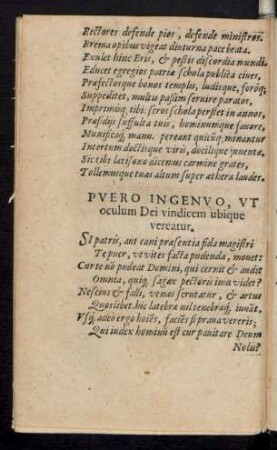 Rectores defende pios, defende ministros.
Brema opibus vigeat diuturna pace beata.
Exulet hinc Eris, & pestis discordia mundi.
Educet egregios patriæ schola publica ciues,
Præfectosque bonos templis, ludisque, foróq;
Suppeditet, multis passim seruire paratos.
Imprimisq; tibi seros schola perstet in annos,
Præsidijs suffulta tuis, hominumque fauore,
Munificaq́; manu. pereant quicūq; minantur
Interitum doctisque viris, docilique iuuentæ.
Sic tibi latisono dicemus carmine grates,
Tollemusque tuas altum super æthera laudes.
PVERO INGENVO, VT
oculum Dei vindicem ubique
vereatur.
SI patris, aut cani præsentia fida magistri
Te puer, vt vites facta pudenda, mouet:
Cur te nō pudeat Domini, qui cernit & audit
Omnia, quiq; sagax pectoris ima videt?
Nescius & falli, venas scrutatur, & artus
Quoslibet. hic latebræ nil tenebræq; iuuāt,
Vsq́; adeò ergo hoīes, facies si praua vereris;
Qui index hominū est cur pauitare Deum
Nolis?